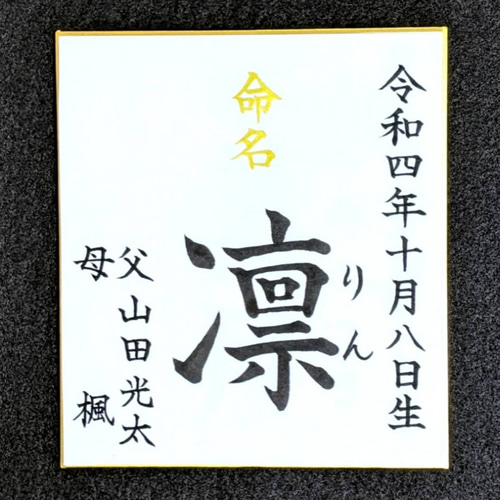 令和四年十月八日生
命名
凛
りん
父 山田光太
母 楓